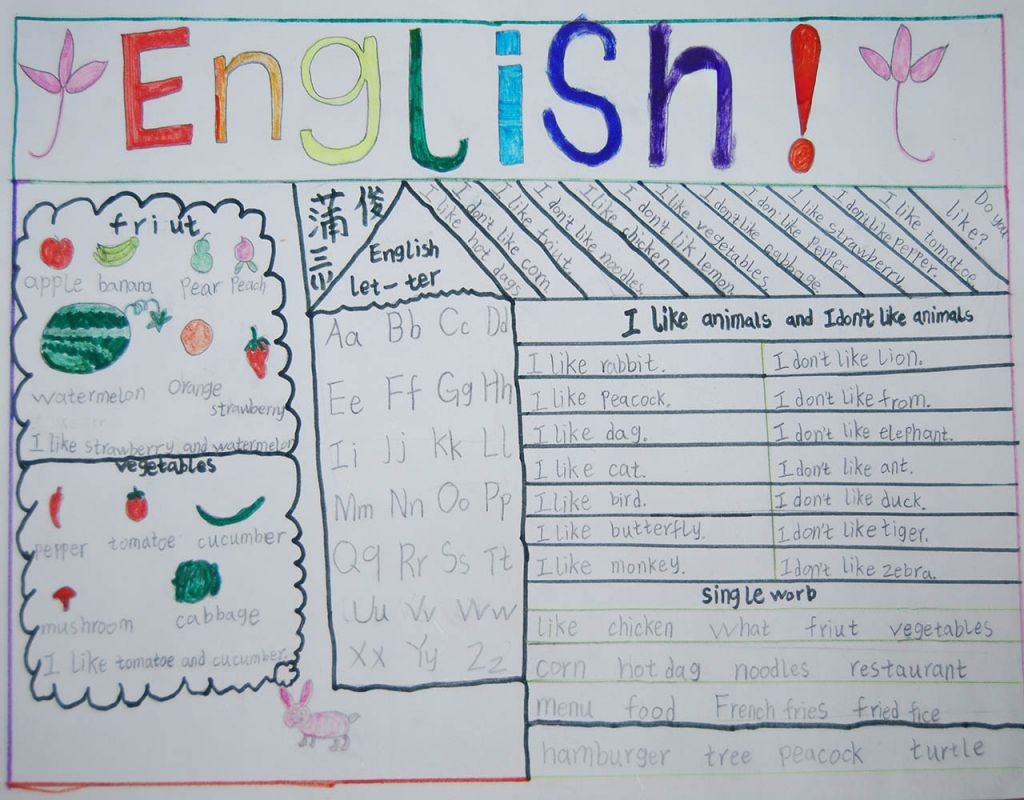 English!
friut
apple banana Pear Peach
watermelon Orange strawberry
I like strawberry and watermelon
vegetables
pepper tomatoe cucumber
mushroom cabbage
I like tomatoe and cucumber.
蒲俊
三(1)
English
let-ter
Aa Bb Cc Dd
Ee Ff Gg Hh
Ii Jj Kk Ll
Mm Nn Oo Pp
Qq Rr Ss Tt
Uu Vv Ww
Xx Yy Zz
I like hot dags
I don't like corn
I like friut.
I don't like noodles
I like chicken.
I don't lik lemon.
I like vegetables.
I don't like cabbage.
I don't like Pepper
I like strawberry
I don't like perper.
I like tomatoe
Do you like?
I like animals and I don't like animals
I like rabbit. I don't like Lion.
I like Peacock. I don't like from.
I like dag. I don't like elephant.
I like cat. I don't like ant.
I like bird. I don't like duck.
I like butterfly. I don't like tiger.
I like monkey. I don't like zebra.
single worb
like chicken what friut vegetables
corn hot dag noodles restaurant
menu food French fries fried fice
hamburger tree peacock turtle